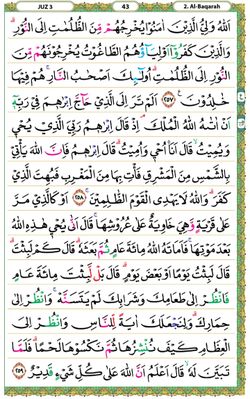 JUZ 3 43 2. Al-Baqarah
اَللّٰهُ وَلِىُّ الَّذِيۡنَ اٰمَنُوۡا يُخۡرِجُهُمۡ مِّنَ الظُّلُمٰتِ اِلَى النُّوۡرِ
وَالَّذِيۡنَ كَفَرُوۡۤا اَوۡلِيٰٓـُٔهُمُ الطَّاغُوۡتُ يُخۡرِجُوۡنَهُمۡ مِّنَ
النُّوۡرِ اِلَى الظُّلُمٰتِ اُولٰٓٮِٕكَ اَصۡحٰبُ النَّارِ هُمۡ فِيۡهَا
خٰلِدُوۡنَ ﴿۲۵۷﴾ اَلَمۡ تَرَ اِلَى الَّذِىۡ حَآجَّ اِبۡرٰهٖمَ فِىۡ رَبِّهٖۤ
اَنۡ اٰتٰٮهُ اللّٰهُ الۡمُلۡكَ اِذۡ قَالَ اِبۡرٰهٖمُ رَبِّىَ الَّذِىۡ يُحۡىٖ
وَيُمِيۡتُ قَالَ اَنَا اُحۡىٖ وَاُمِيۡتُ قَالَ اِبۡرٰهٖمُ فَاِنَّ اللّٰهَ يَاۡتِىۡ
بِالشَّمۡسِ مِنَ الۡمَشۡرِقِ فَاۡتِ بِهَا مِنَ الۡمَغۡرِبِ فَبُهِتَ الَّذِىۡ
كَفَرَ وَاللّٰهُ لَا يَهۡدِى الۡقَوۡمَ الظّٰلِمِيۡنَ ﴿۲۵۸﴾ اَوۡ كَالَّذِىۡ مَرَّ
عَلٰى قَرۡيَةٍ وَّهِىَ خَاوِيَةٌ عَلٰى عُرُوۡشِهَا قَالَ اَنّٰى يُحۡىٖ هٰذِهِ اللّٰهُ
بَعۡدَ مَوۡتِهَا فَاَمَاتَهُ اللّٰهُ مِائَةَ عَامٍ ثُمَّ بَعَثَهٗ قَالَ كَمۡ لَبِثۡتَ
قَالَ لَبِثۡتُ يَوۡمًا اَوۡ بَعۡضَ يَوۡمٍ قَالَ بَلۡ لَّبِثۡتَ مِائَةَ عَامٍ
فَانۡظُرۡ اِلٰى طَعَامِكَ وَشَرَابِكَ لَمۡ يَتَسَنَّهۡ وَانۡظُرۡ اِلٰى
حِمَارِكَ وَلِنَجۡعَلَكَ اٰيَةً لِّلنَّاسِ وَانۡظُرۡ اِلَى
الۡعِظَامِ كَيۡفَ نُنۡشِزُهَا ثُمَّ نَكۡسُوۡهَا لَحۡمًا فَلَمَّا
تَبَيَّنَ لَهٗ قَالَ اَعۡلَمُ اَنَّ اللّٰهَ عَلٰى كُلِّ شَىۡءٍ قَدِيۡرٌ ﴿۲۵۹﴾